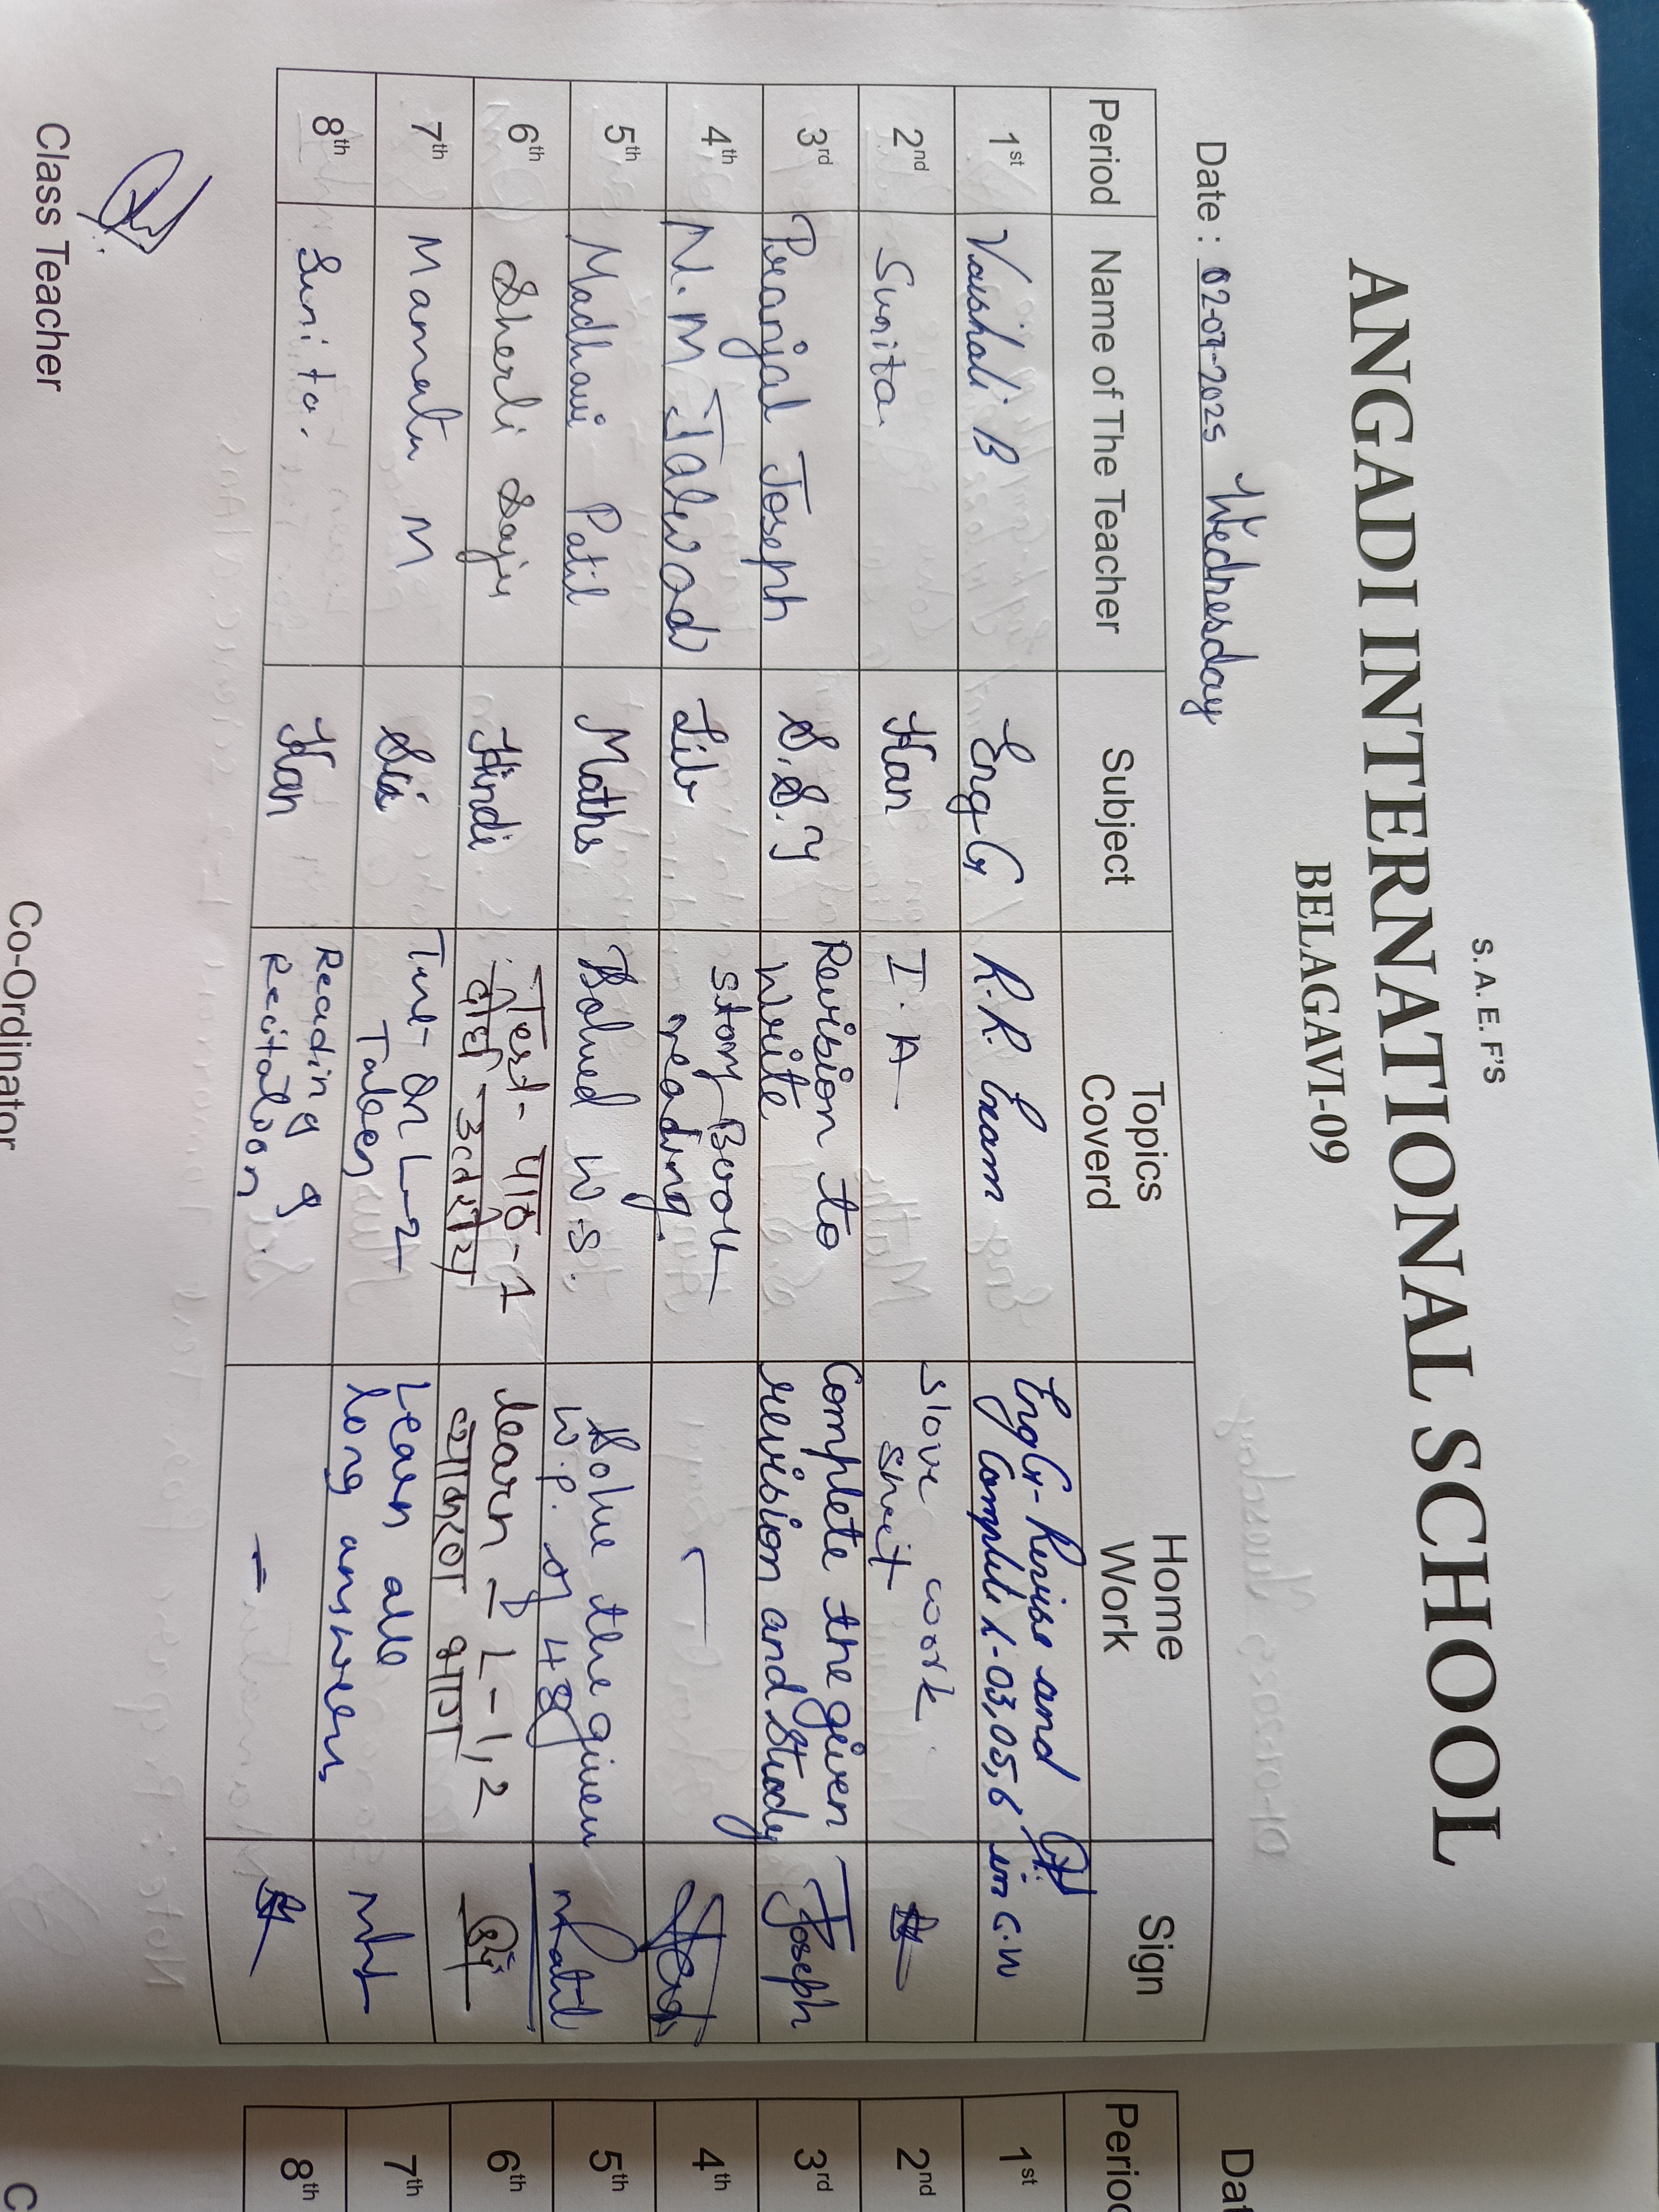 S.A.E.F'S
ANGADI INTERNATIONAL SCHOOL
BELAGAVI-09
Date : 02-07-2025 Wednesday
Period Name of The Teacher Subject Topics Coverd Home Work Sign
1st Vaishali B EngGr R.R. Exam EngGr- Revise and
Complete L-03,05,6 in C.W
2nd Sunita Kan I.A. Slove work
sheet
3rd Pranjal Joseph S.S.T Revision to Complete the given Joseph
write revision and Study
4th N.M Talwad Lib story Book
reading.
5th Madhavi Patil Maths Solved W.S. Solve the given
W.P. of 48
6th Sherli Saju Hindi Test- पाठ-1 learn - L-1,2
व्याकरण भाग
7th Mamata M Sci Test on L-2 Learn all
Taken long answers
8th Sunita. Kan Reading & -
Recitation.
Class Teacher Co-Ordinator
Period
1st
2nd
3rd
4th
5th
6th
7th
8th